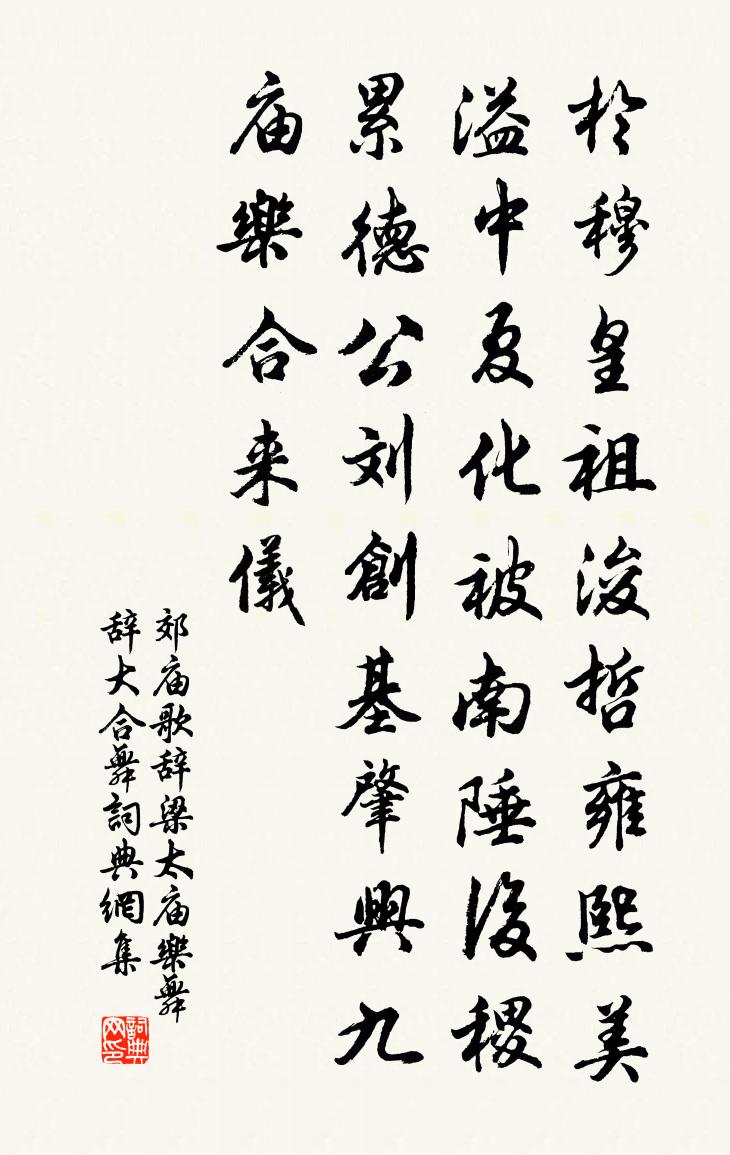 於穆皇祖濬哲雍熙美
溢中夏化被南陲後稷
累德公刘創基肇興九
庙樂合来儀
郊庙歌辞梁太庙樂舞
辞大合舞詞典網集
詞典网印